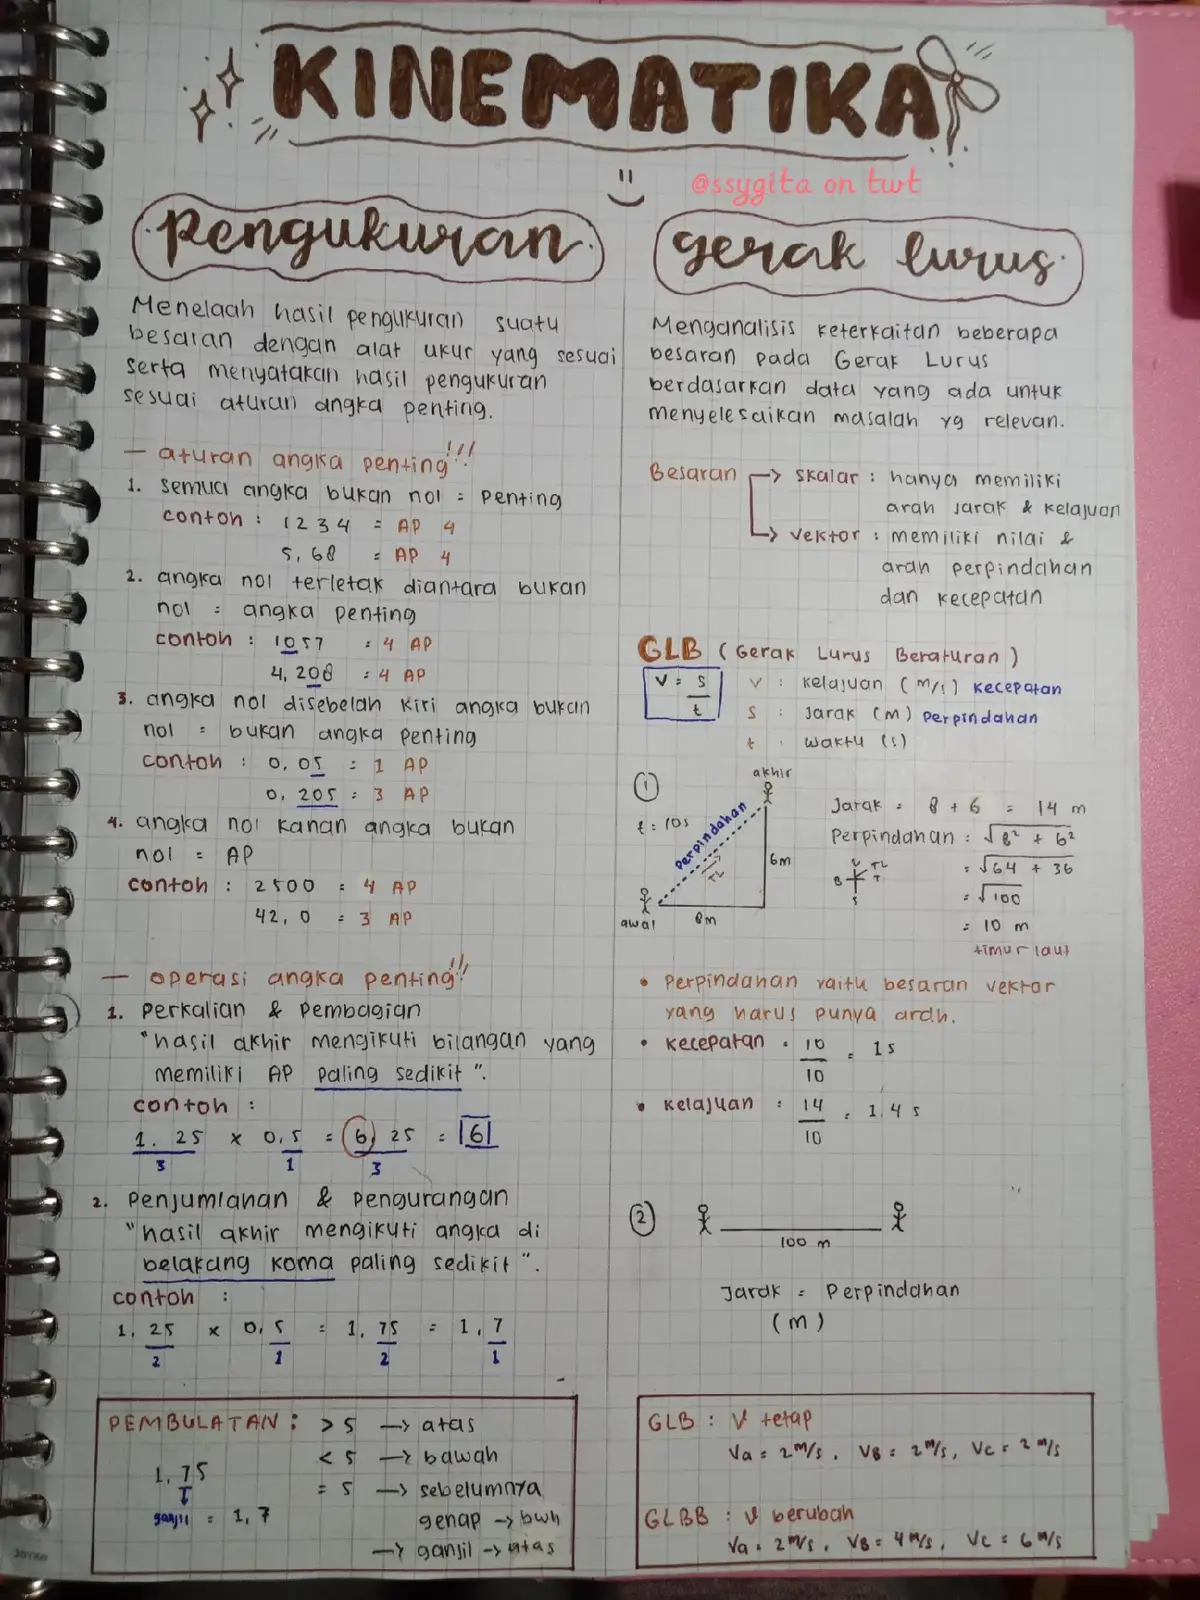 KINEMATIKA
@ssygita on twt
pengukuran
Menelaah hasil pengukuran suatu
besaran dengan alat ukur yang sesuai
serta menyatakan hasil pengukuran
sesuai aturan angka penting.
— aturan angka penting!!!
1. semua angka bukan nol = penting
contoh : 1234 = AP 4
5,68 = AP 4
2. angka nol terletak diantara bukan
nol = angka penting
contoh : 1057 = 4 AP
4,208 = 4 AP
3. angka nol disebelah kiri angka bukan
nol = bukan angka penting
contoh : 0,05 = 1 AP
0,205 = 3 AP
4. angka nol kanan angka bukan
nol = AP
contoh : 2500 = 4 AP
42,0 = 3 AP
— operasi angka penting!!
1. perkalian & pembagian
"hasil akhir mengikuti bilangan yang
memiliki AP paling sedikit".
contoh :
1.25 x 0,5 = 6,25 = 6
3 1 3
2. penjumlahan & pengurangan
"hasil akhir mengikuti angka di
belakang koma paling sedikit".
contoh :
1,25 x 0,5 = 1,75 = 1,7
2 1 2 1
PEMBULATAN : > 5 → atas
< 5 → bawah
1,75 = 5 → sebelumnya
ganjil = 1,7 genap → bwh
→ ganjil → atas
gerak lurus
Menganalisis keterkaitan beberapa
besaran pada Gerak Lurus
berdasarkan data yang ada untuk
menyelesaikan masalah yg relevan.
Besaran → skalar : hanya memiliki
arah jarak & kelajuan
→ vektor : memiliki nilai &
arah perpindahan
dan kecepatan
GLB (Gerak Lurus Beraturan)
V = s/t
V : kelajuan (m/s) kecepatan
s : jarak (m) perpindahan
t : waktu (s)
1
akhir
t = 10s
perpindahan
TL
6m
8m
awal
Jarak = 8 + 6 = 14 m
Perpindahan = √8² + 6²
U TL
B T
S
= √64 + 36
= √100
= 10 m
timur laut
• perpindahan yaitu besaran vektor
yang harus punya arah.
• kecepatan = 10/10 = 1 s
• kelajuan = 14/10 = 1,4 s
2
100 m
Jarak = Perpindahan
(m)
GLB : V tetap
Va = 2 m/s, VB = 2 m/s, Vc = 2 m/s
GLBB : V berubah
Va = 2 m/s, VB = 4 m/s, Vc = 6 m/s